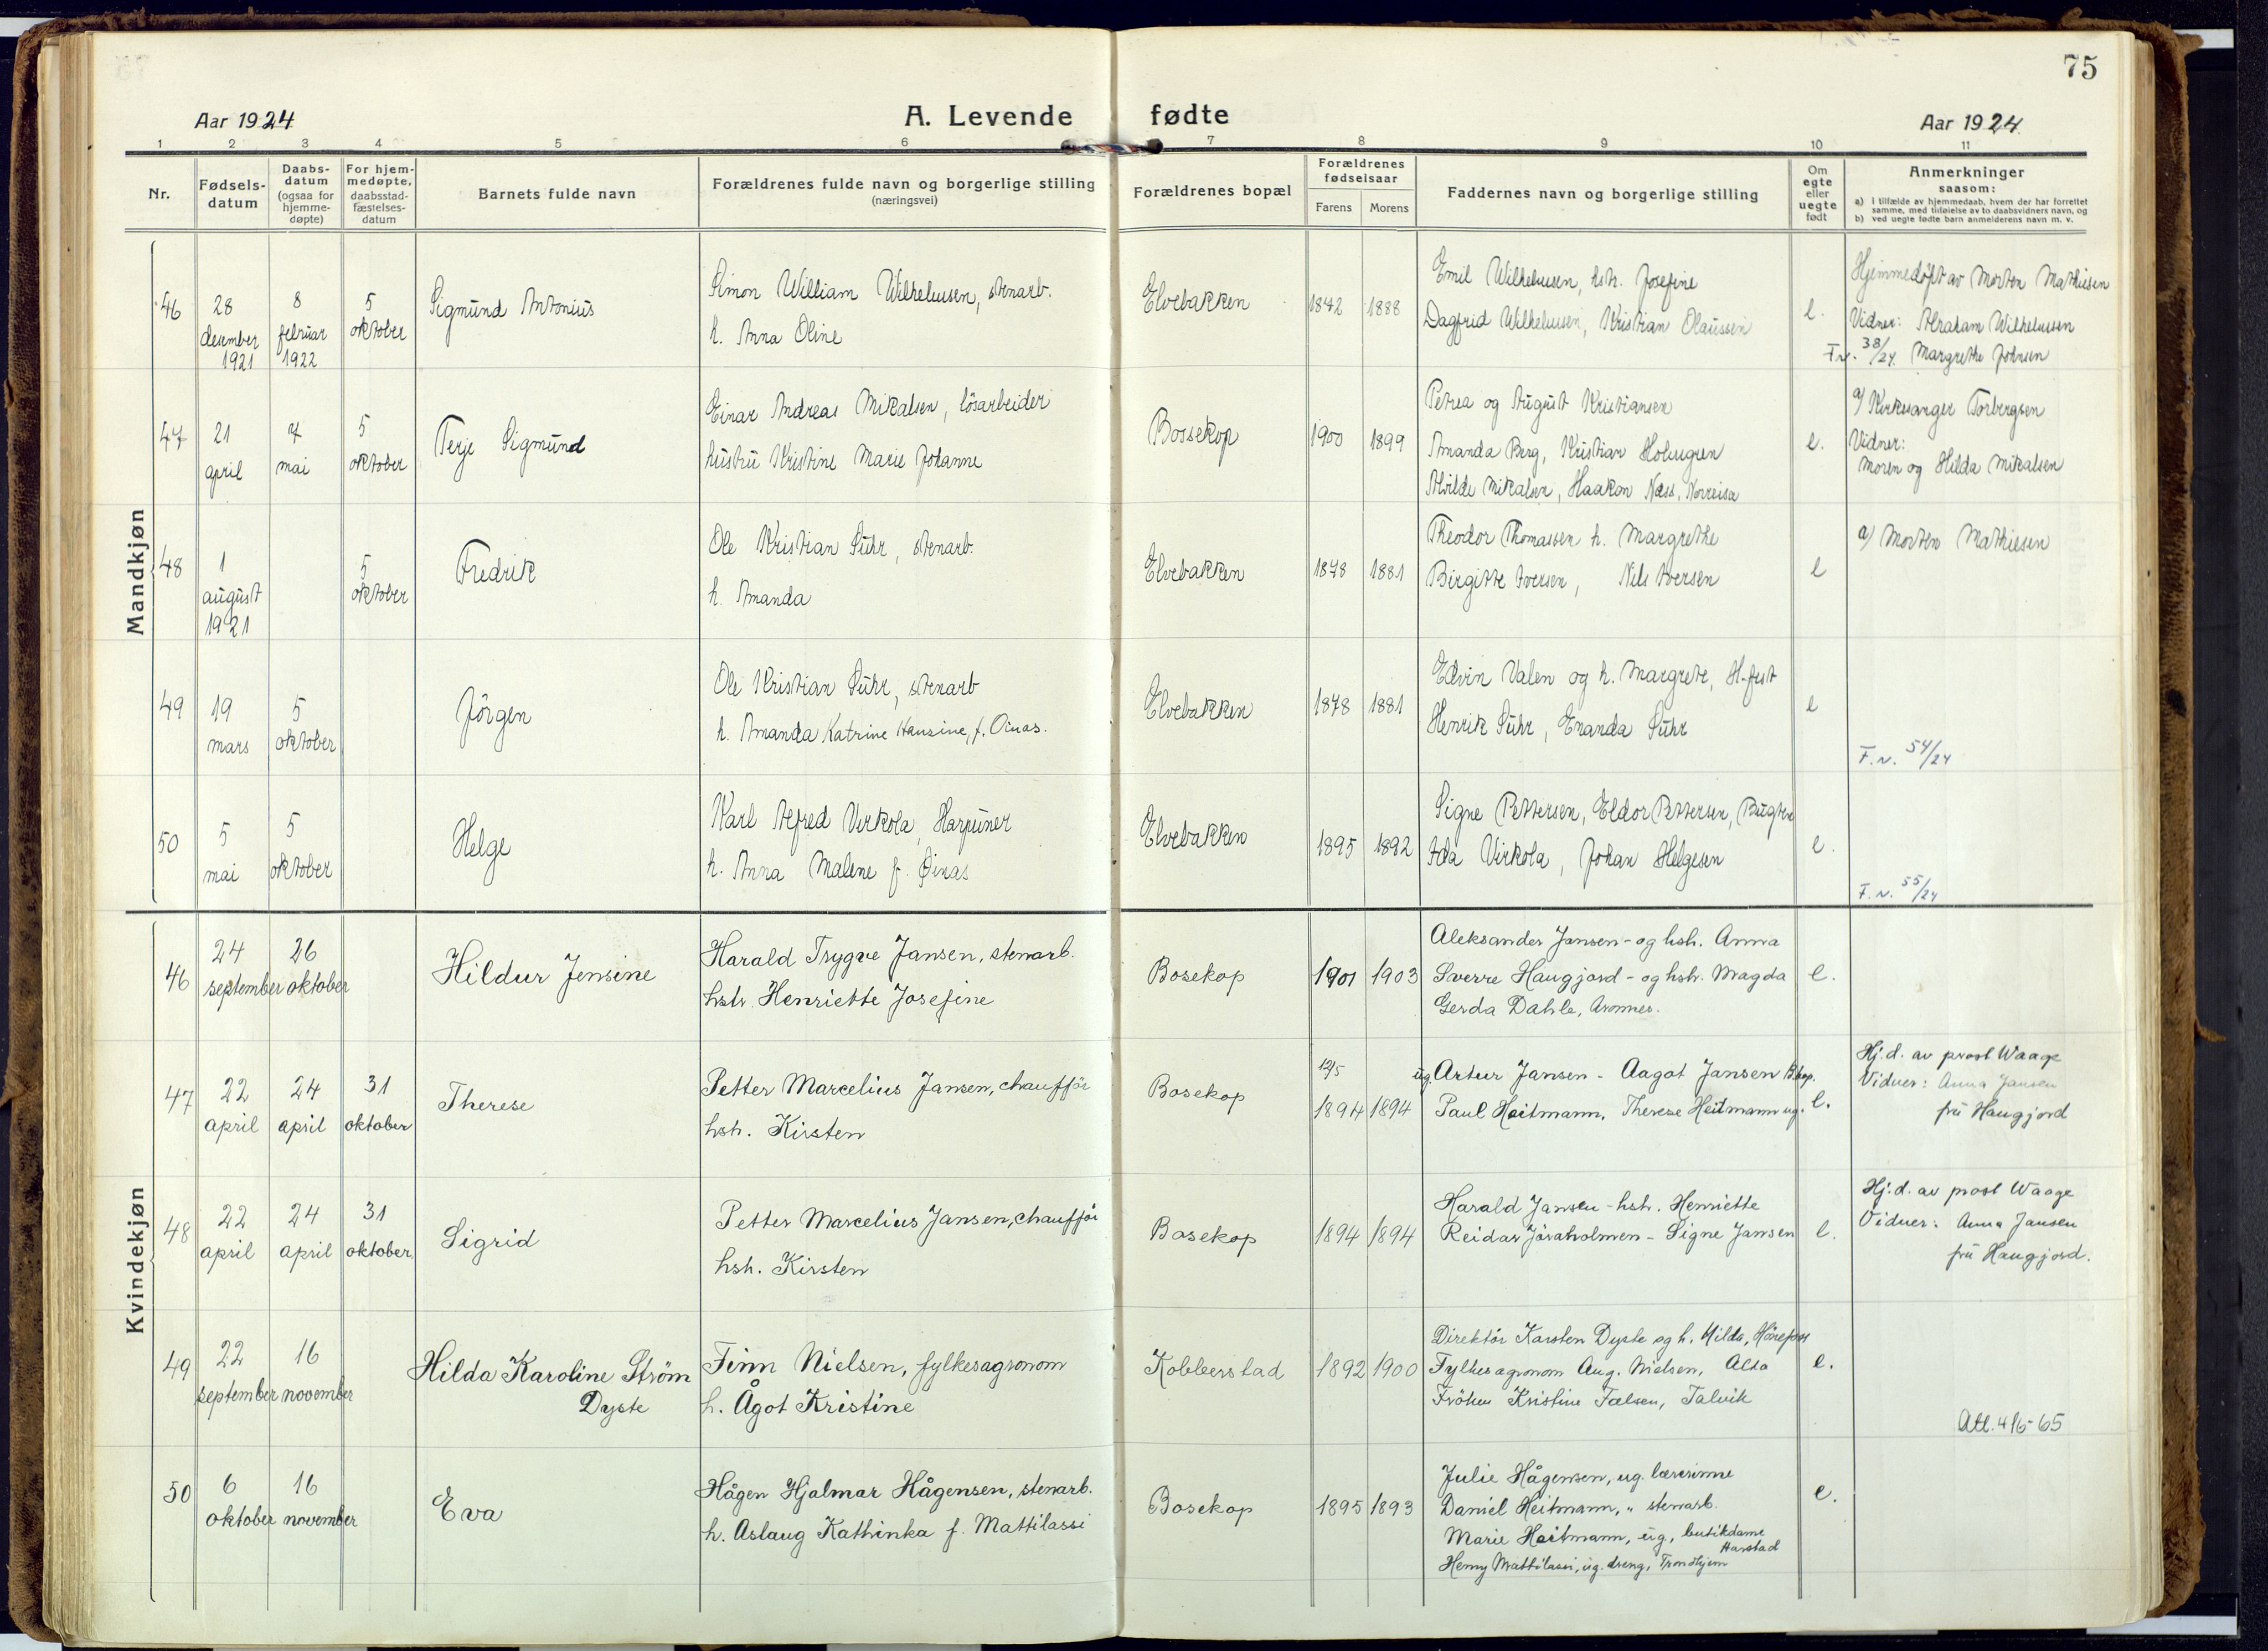 75
Aar 1924
A. Levende fødte
Aar 1924
1 2 3 4 5 6 7 8 9 10 11
Nr.
Fødsels-
datum
Daabs-
datum
(ogsaa for
hjemme-
døpte)
For hjem-
medøpte,
daabsstad-
fæstelses-
datum
Barnets fulde navn
Forældrenes fulde navn og borgerlige stilling
(næringsvei)
Forældrenes bopæl
Forældrenes
fødselsaar
Farens Morens
Faddernes navn og borgerlige stilling
Om
egte
eller
uegte
født
Anmerkninger
saasom:
a) i tilfælde av hjemmedaab, hvem der har forrettet
samme, med tilføielse av to daabsvidners navn, og
b) ved uegte fødte barn anmelderens navn m. v.
Mandkjøn
46
28
desember
1921
8
februar
1922
5
oktober
Sigmund Antonius
Simon William Wilhelmsen, stenarb.
h. Anna Oline
Elvebakken
1842 1888
Emil Wilhelmsen, hstr. Josefine
Dagfrid Wilhelmsen, Kristian Olaussen
e.
Hjemmedøpt av Morten Mathiesen
Vidner: Abraham Wilhelmsen
F.n. 38/24. Margrethe Johnsen
47
21
april
7
mai
5
oktober
Terje Sigmund
Einar Andreas Mikalsen, løsarbeider
hustru Kristine Marie Johanne
Bossekop
1900 1899
Petrea og August Kristiansen
Amanda Berg, Kristian Holmgren
Alvilde Mikalsen, Haakon Næss, Norreisa
e.
a) Kirkesanger Torbergsen
Vidner:
Moren og Hilda Mikalsen
48
1
august
1921
5
oktober
Fredrik
Ole Kristian Suhr, stenarb.
h. Amanda
Elvebakken
1878 1881
Theodor Thomassen h. Margrethe
Birgitte Iversen, Nils Iversen
e
a) Morten Mathiesen
49
19
mars
5
oktober
Jørgen
Ole Kristian Suhr, stenarb
h. Amanda Katrine Hansine, f. Oinas.
Elvebakken
1878 1881
Edvin Valen og h. Margrete, H.fest
Henrik Suhr, Enanda Suhr
e
F.n. 54/24
50
5
mai
5
oktober
Helge
Karl Alfred Virkola, Harpuner
h. Anna Malene f. Øinas
Elvebakken
1895 1892
Signe Pettersen, Eldor Pettersen,
Ida Virkola, Johan Helgesen
e.
F.n. 55/24
Kvindekjøn
46
24
september
26
oktober
Hildur Jensine
Harald Trygve Jansen, stenarb.
hstr. Henriette Josefine
Bosekop
1901 1903
Aleksander Jansen - og hsh. Anna
Sverre Haugjord - og hsh. Magda
Gerda Dahle, Aronnes.
e.
47
22
april
24
april
31
oktober
Therese
Petter Marcelius Jansen, chauffør
hsh. Kirsten
Bosekop
12/5
1894 1894
ug. Artur Jansen - Aagot Jansen B.kop.
Paul Heitmann, Therese Heitmann ug.
e.
Hj.d. av prost Waage
Vidner: Anna Jansen
frü Haugjord
48
22
april
24
april
31
oktober.
Sigrid
Petter Marcelius Jansen, chauffør
hsh. Kirsten
Bosekop
1894 1894
Harald Jansen - hsh. Henriette
Reidar Jöraholmen - Signe Jansen
e.
Hj.d. av prost Waage
Vidner: Anna Jansen
frü Haugjord.
49
22
september
16
november
Hilda Karoline Strøm
Dyste
Finn Nielsen, fylkesagronom
h. Ågot Kristine
Kobberstad
1892 1900
Direktör Karsten Dyste og h. Hilda, Hönefoss
Fylkesagronom Aug. Nielsen, Alta
Fröken Kristine Falsen, Talvik
e.
Att. 4/6-65
50
6
oktober
16
november
Eva
Hågen Hjalmar Hågensen, stenarb.
h. Aslaug Kathinka f. Mattilassi
Bosekop
1895 1893
Julie Hågensen, ug. lærerinne
Daniel Heitmann, " stenarb.
Marie Heitmann, ug, butikdame
Harstad
Henny Mattilassi, ug. dreng, Trondhjem
e.